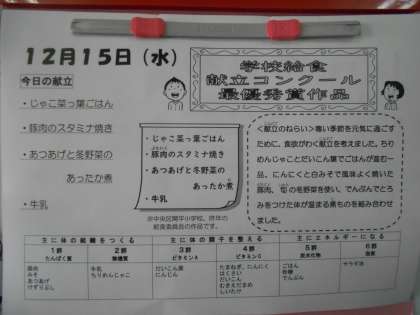 12月15日（水）
学校給食
献立コンクール
最優秀賞作品
今日の献立
・じゃこ菜っ葉ごはん
・豚肉のスタミナ焼き
・あつあげと冬野菜の
あったか煮
・牛乳
・じゃこ菜っ葉ごはん
・豚肉のスタミナ焼き
・あつあげと冬野菜の
あったか煮
・牛乳
＜献立のねらい＞寒い季節を元気に過ごす
ために、食欲がわく献立を考えました。ちり
めんじゃことだいこん葉でごはんが進む一
品、にんにくと白みそで風味よく焼いた
豚肉、旬の冬野菜を使い、でんぷんでとろ
みをつけた体が温まる煮ものを組み合わせ
ました。
主に体の組織をつくる
主に体の調子を整える
主にエネルギーになる
1群
たんぱく質
2群
無機質
3群
ビタミンA
4群
ビタミンC
5群
炭水化物
6群
脂肪
豚肉
みそ
あつあげ
けずりぶし
牛乳
ちりめんじゃこ
だいこん葉
にんじん
たまねぎ、にんにく
はくさい
だいこん
むきえだまめ
しいたけ
ごはん
砂糖
でんぷん
サラダ油